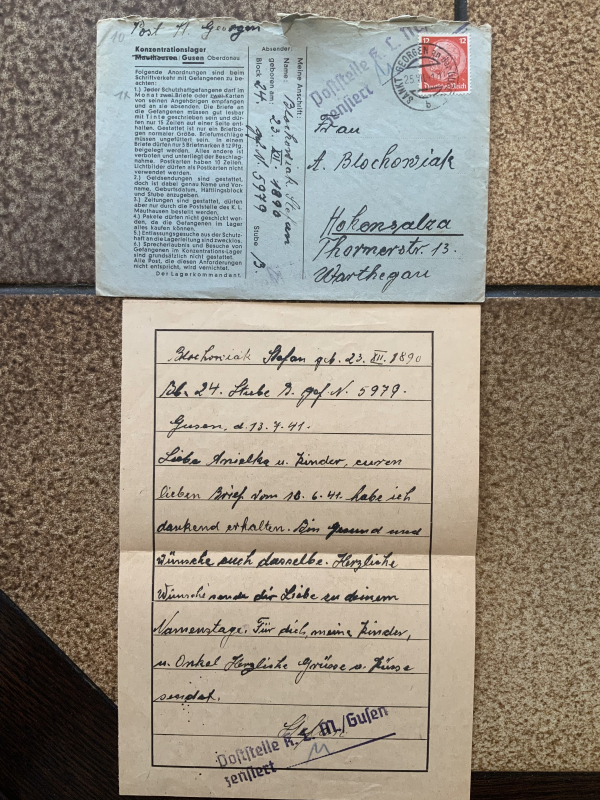 Post St. Georgen
Konzentrationslager
Mauthausen: Gusen Oberdonau
Folgende Anordnungen sind beim
Schriftverkehr mit Gefangenen zu be-
achten:
1.) Jeder Schutzhaftgefangene darf im
Monat zwei Briefe oder zwei Karten
von seinen Angehörigen empfangen
und an sie absenden. Die Briefe an
die Gefangenen müssen gut lesbar
mit Tinte geschrieben sein und dür-
fen nur 15 Zeilen auf einer Seite ent-
halten. Gestattet ist nur ein Briefbo-
gen normaler Größe. Briefumschläge
müssen ungefüttert sein. In einem
Briefe dürfen nur 5 Briefmarken à 12 Pfg.
beigelegt werden. Alles andere ist
verboten und unterliegt der Beschlag-
nahme. Postkarten haben 10 Zeilen.
Lichtbilder dürfen als Postkarten nicht
verwendet werden.
2.) Geldsendungen sind gestattet,
doch ist dabei genau Name und Vor-
name, Geburtsdatum, Häftlingsblock
und Stube anzugeben.
3.) Zeitungen sind gestattet, dürfen
aber nur durch die Poststelle des K. L.
Mauthausen bestellt werden.
4.) Pakete dürfen nicht geschickt wer-
den, da die Gefangenen im Lager
alles kaufen können.
5.) Entlassungsgesuche aus der Schutz-
haft an die Lagerleitung sind zwecklos.
6.) Sprecherlaubnis und Besuche von
Gefangenen im Konzentrations-Lager
sind grundsätzlich nicht gestattet.
Alle Post, die diesen Anforderungen
nicht entspricht, wird vernichtet.
Der Lagerkommandant.
Absender:
Meine Anschrift:
Name: Blochowiak Stefan
geboren am: 23. XII. 1890
Block 24. gef. N. 5979 Stube B
Poststelle K. L.
zensiert
12 12
Deutsches Reich
SANKT GEORGEN
Frau
A. Blochowiak
Hohensalza
Thornerstr. 13.
Warthegau
Blochowiak Stefan geb. 23. XII. 1890
24. Stube B. gef. N. 5979.
Gusen, d. 13.7.41.
Liebe Anielka u. Kinder, euren
lieben Brief vom 10.6.41. habe ich
dankend erhalten. Bin gesund und
wünsche euch dasselbe. Herzliche
Wünsche sende dir Liebe zu deinem
Namenstage. Für dich, meine Kinder,
u. Onkel Herzliche Grüsse u. Küsse
sendet.
Poststelle K. L. M./Gusen
zensiert